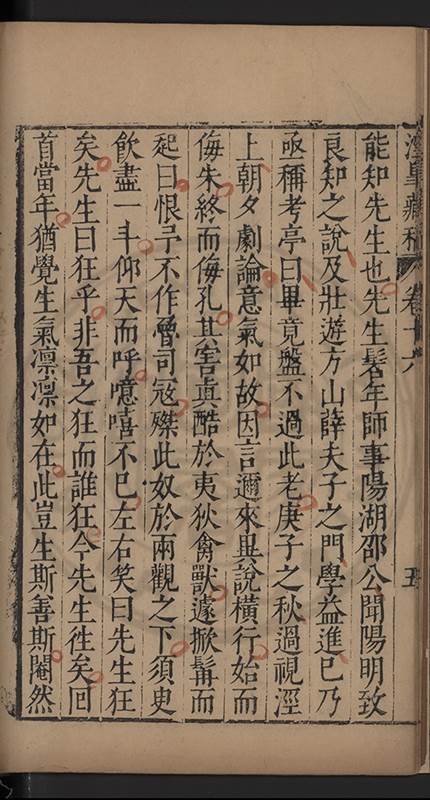 涇臯藏稿 卷十六 五
能知先生也先生髫年師事陽湖邵公聞陽明致
良知之說及壯遊方山薛夫子之門學益進已乃
亟稱考亭曰畢竟盤不過此老庚子之秋過視涇
上朝夕劇論意氣如故因言邇來異說橫行始而
侮朱終而侮孔其害眞酷於夷狄禽獸遽掀髯而
起曰恨予不作魯司寇殛此奴於兩觀之下須臾
飲盡一斗仰天而呼噫嘻不已左右笑曰先生狂
矣先生曰狂乎非吾之狂而誰狂今先生徃矣回
首當年猶覺生氣凛凛如在此豈生斯善斯閹然